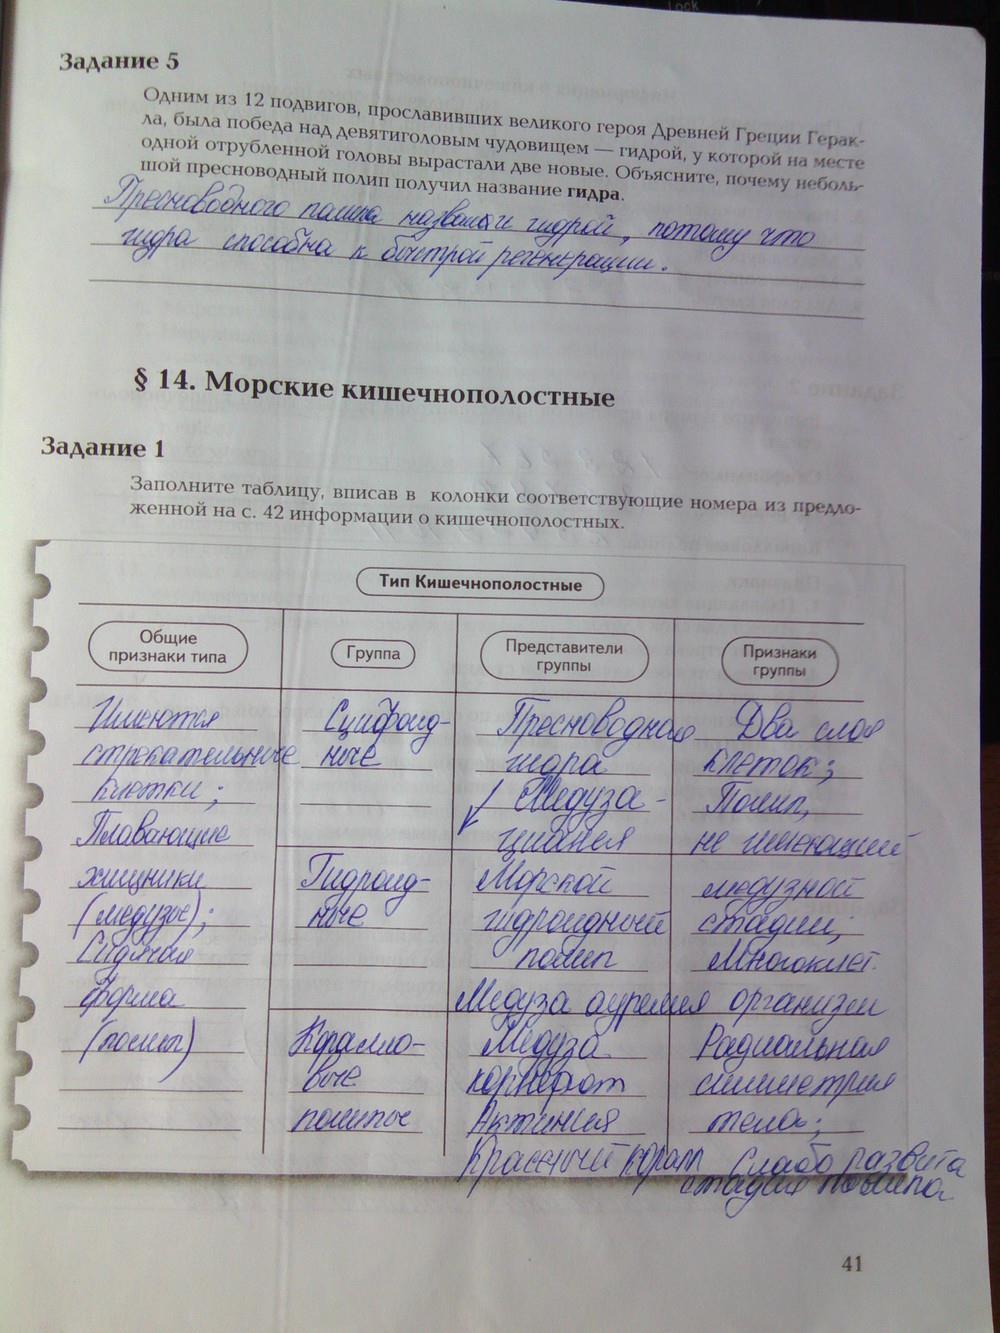 Lock
Задание 5
Одним из 12 подвигов, прославивших великого героя Древней Греции Герак-
ла, была победа над девятиголовым чудовищем — гидрой, у которой на месте
одной отрубленной головы вырастали две новые. Объясните, почему неболь-
шой пресноводный полип получил название гидра.
Пресноводного полипа назвали гидрой, потому что
гидра способна к быстрой регенерации.
§ 14. Морские кишечнополостные
Задание 1
Заполните таблицу, вписав в колонки соответствующие номера из предло-
женной на с. 42 информации о кишечнополостных.
Тип Кишечнополостные
Общие
признаки типа
Группа
Представители
группы
Признаки
группы
Имеются
стрекательные
клетки;
Плавающие
хищники
(медузы);
Сидячая
форма
(полип)
Сцифоид-
ные
Гидроид-
ные
Коралло-
вые
полипы
Пресноводная
гидра
Медуза-
цианея
Морской
гидроидный
полип
Медуза аурелия
Медуза
корнерот
Актиния
Красный коралл
Два слоя
клеток;
Полип,
не имеющий
медузной
стадии;
Многоклет.
организм
Радиальная
симметрия
тела;
Слабо развита
стадия полипа
41